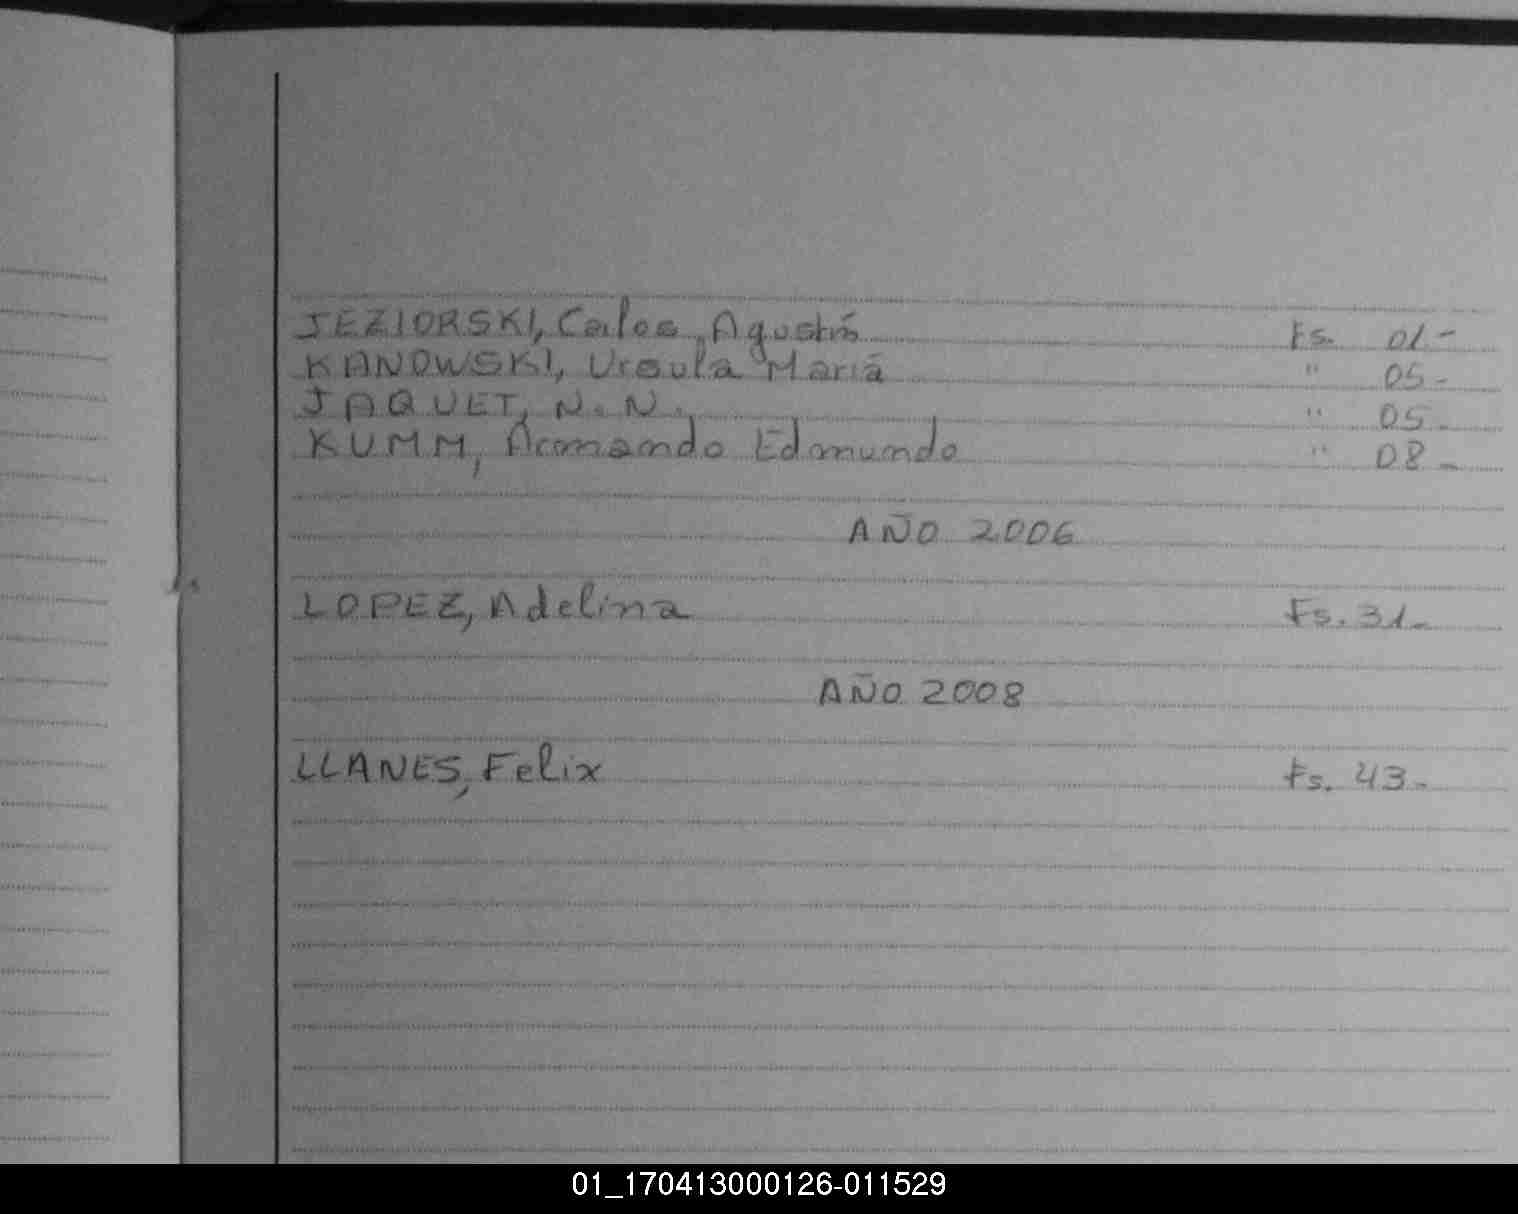 JEZIORSKI, Carlos Agustín Fs. 01-
KANOWSKI, Ursula Mariá " 05-
JAQUET, N. N. " 05-
KUMM, Armando Edmundo " 08-
AÑO 2006
LOPEZ, Adelina Fs. 31-
AÑO 2008
LLANES, Felix Fs. 43-
01_170413000126-011529